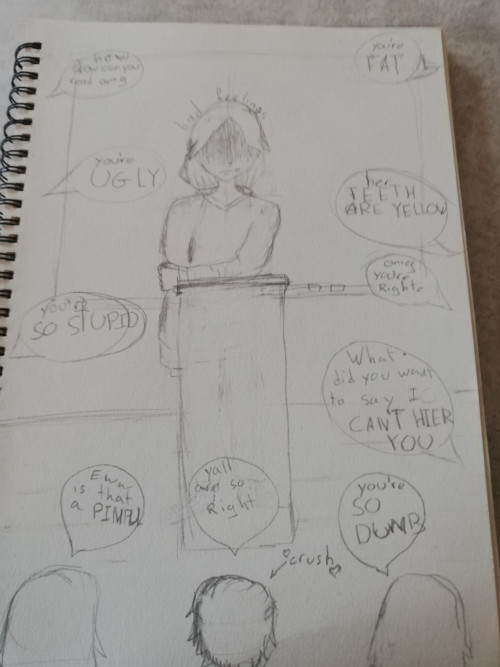 how
slow can you
read omg
you're
FAT
hurt feelings
you're
UGLY
her
TEETH
ARE YELLOW
omg
you're
Right
you're
SO STUPID
What
did you want
to say I
CAN'T HIER
YOU
Eww
is that
a PIMPLL
yall
are so
Right
you're
SO
DUMB
crush